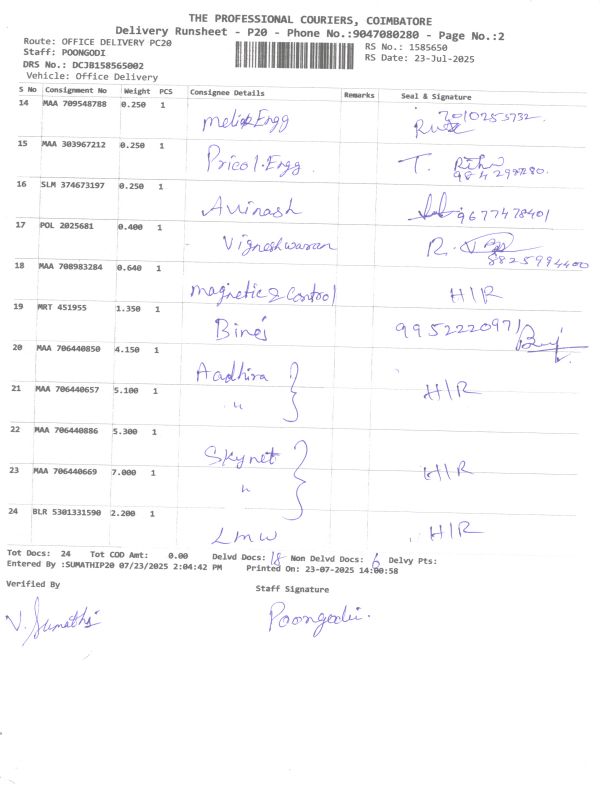 THE PROFESSIONAL COURIERS, COIMBATORE
Delivery Runsheet - P20 - Phone No.:9047080280 - Page No.:2
Route: OFFICE DELIVERY PC20
RS No.: 1585650
Staff: POONGODI
RS Date: 23-Jul-2025
DRS No.: DCJB158565002
Vehicle: Office Delivery
S No Consignment No Weight PCS Consignee Details Remarks Seal & Signature
14 MAA 709548788 0.250 1 Engg 7010253732
15 MAA 303967212 0.250 1 Pricol. Engg. T.
16 SLM 374673197 0.250 1 Avinash 9677478401
17 POL 2025681 0.400 1 Vigneshwaran R. 8825994400
18 MAA 708983284 0.640 1 Magnetic & Control H/R
19 MRT 451955 1.350 1 Binoj 9952220971
20 MAA 706440850 4.150 1 Aadhira
21 MAA 706440657 5.100 1 " H/R
22 MAA 706440886 5.300 1 Skynet
23 MAA 706440669 7.000 1 " H/R
24 BLR 5301331590 2.200 1 LMW H/R
Tot Docs: 24 Tot COD Amt: 0.00 Delvd Docs: 18 Non Delvd Docs: 6 Delvy Pts:
Entered By :SUMATHIP20 07/23/2025 2:04:42 PM Printed On: 23-07-2025 14:00:58
Verified By
Staff Signature
V. Sumathi
Poongodi.